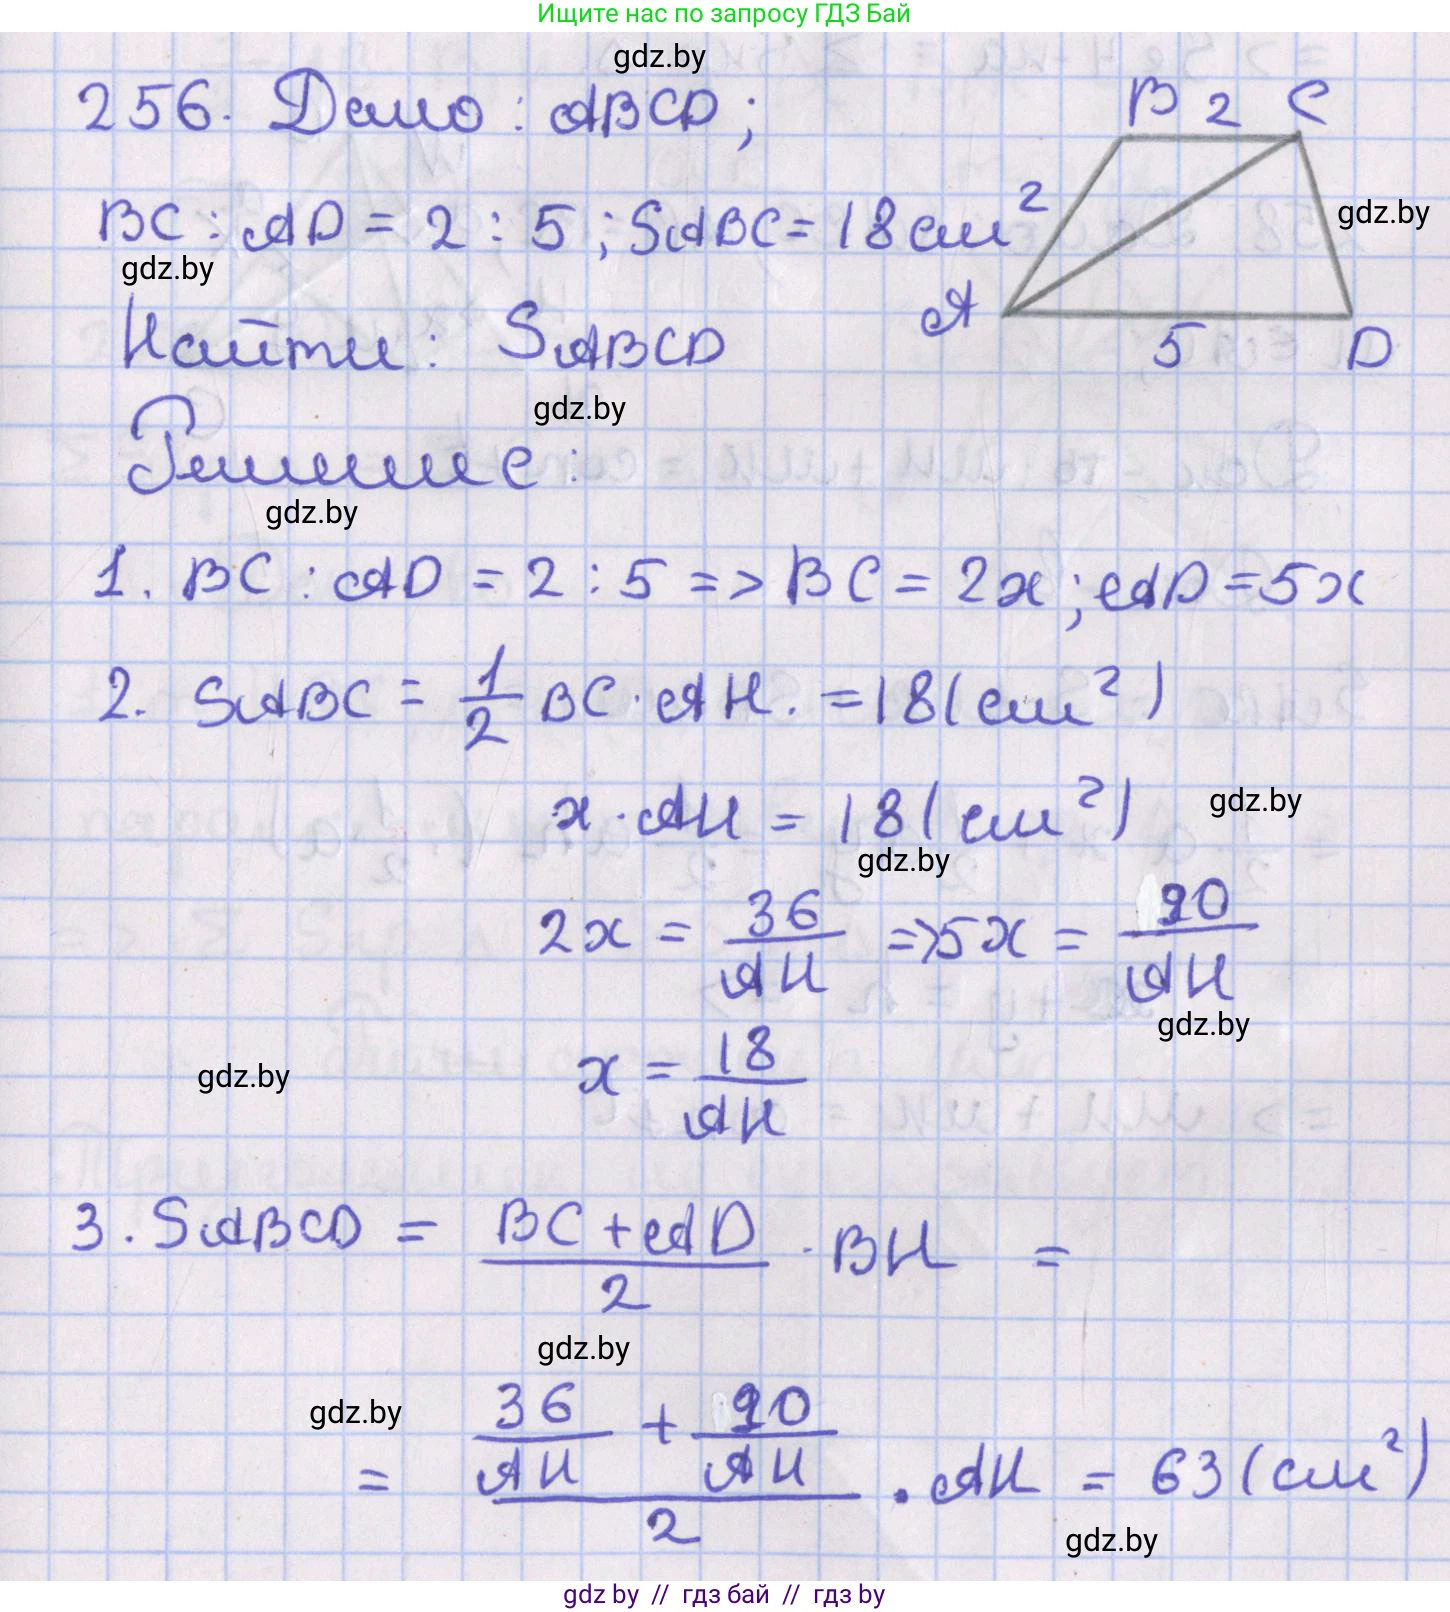 Ищите нас по запросу ГДЗ Бай
gdz.by
256. Дано: ABCD;
B 2 C
BC : AD = 2 : 5 ; SABC = 18 см²
gdz.by
gdz.by
A 5 D
Найти: SABCD
gdz.by
Решение:
gdz.by
1. BC : AD = 2 : 5 => BC = 2x ; AD = 5x
2. SABC = 1/2 BC · AH. = 18 (см²)
x · AH = 18 (см²)
gdz.by
gdz.by
2x = 36/AH => 5x = 90/AH
gdz.by
x = 18/AH
gdz.by
3. SABCD = (BC + AD)/2 · BH =
gdz.by
gdz.by
= (36/AH + 90/AH)/2 · AH = 63 (см²)
gdz.by
gdz by // гдз бай // гдз by